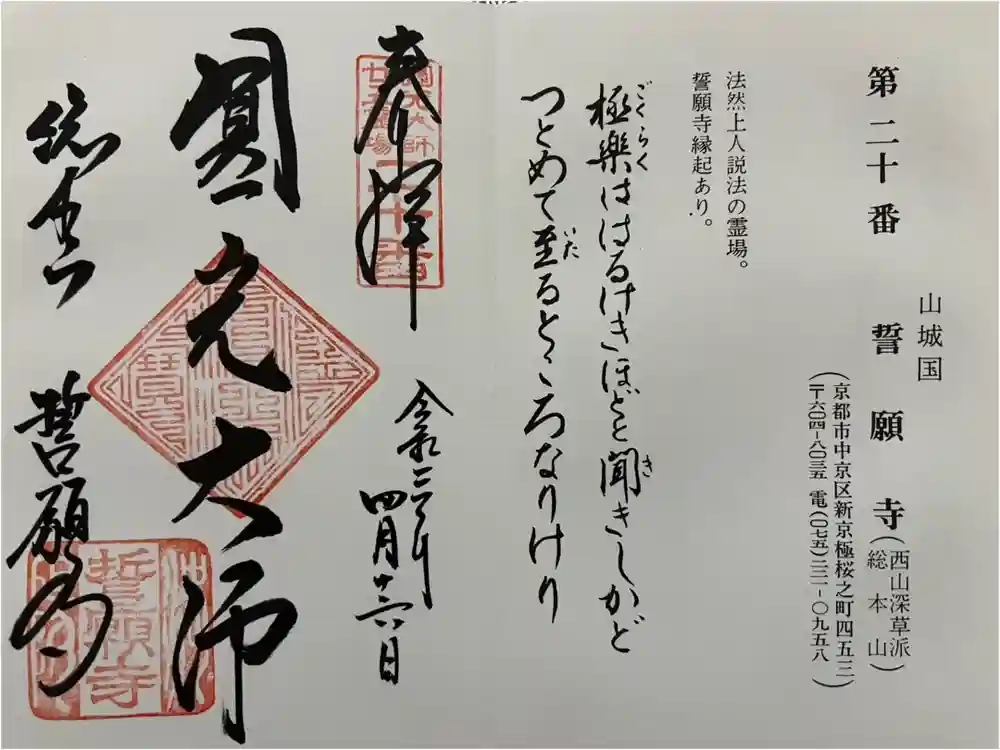 山城国
第二十番 誓願寺(西山深草派総本山)
(京都市中京区新京極桜之町四五三)
(〒六〇四-八〇三五 電(〇七五)二二一-〇九五八)
法然上人説法の霊場。
誓願寺縁起あり。
極楽ははるけきほどと聞きしかど
ごくらく
き
つとめて至るところなりけり
いた
奉拝
圓光大師
廿五霊場
二十番
令和三年
四月十六日
圓光大師
総本山
誓願寺
誓願寺